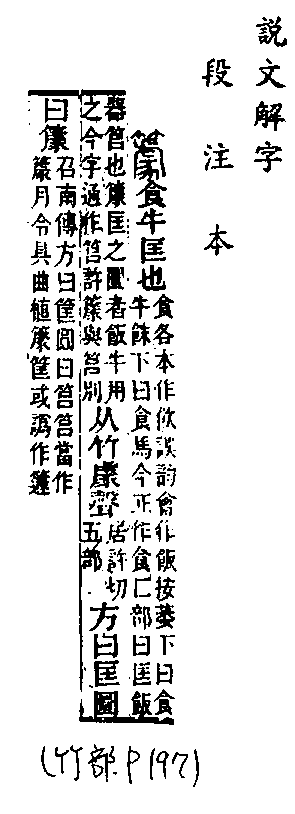 說文解字
段注本
𥴧食牛匡也食各本作飲誤韵會作飯按萎下曰食
牛䬴下曰食馬今正作食匚部曰匡飯
器筥也𥴧匡之圜者飯牛用
之今字通作筥許𥴧與筥別从竹豦聲居許切
五部方曰匡圜
曰𥴧召南傳方曰筐圓曰筥筥當作
𥴧月令具曲植𥴧筐或譌作籧
(竹部.P197)